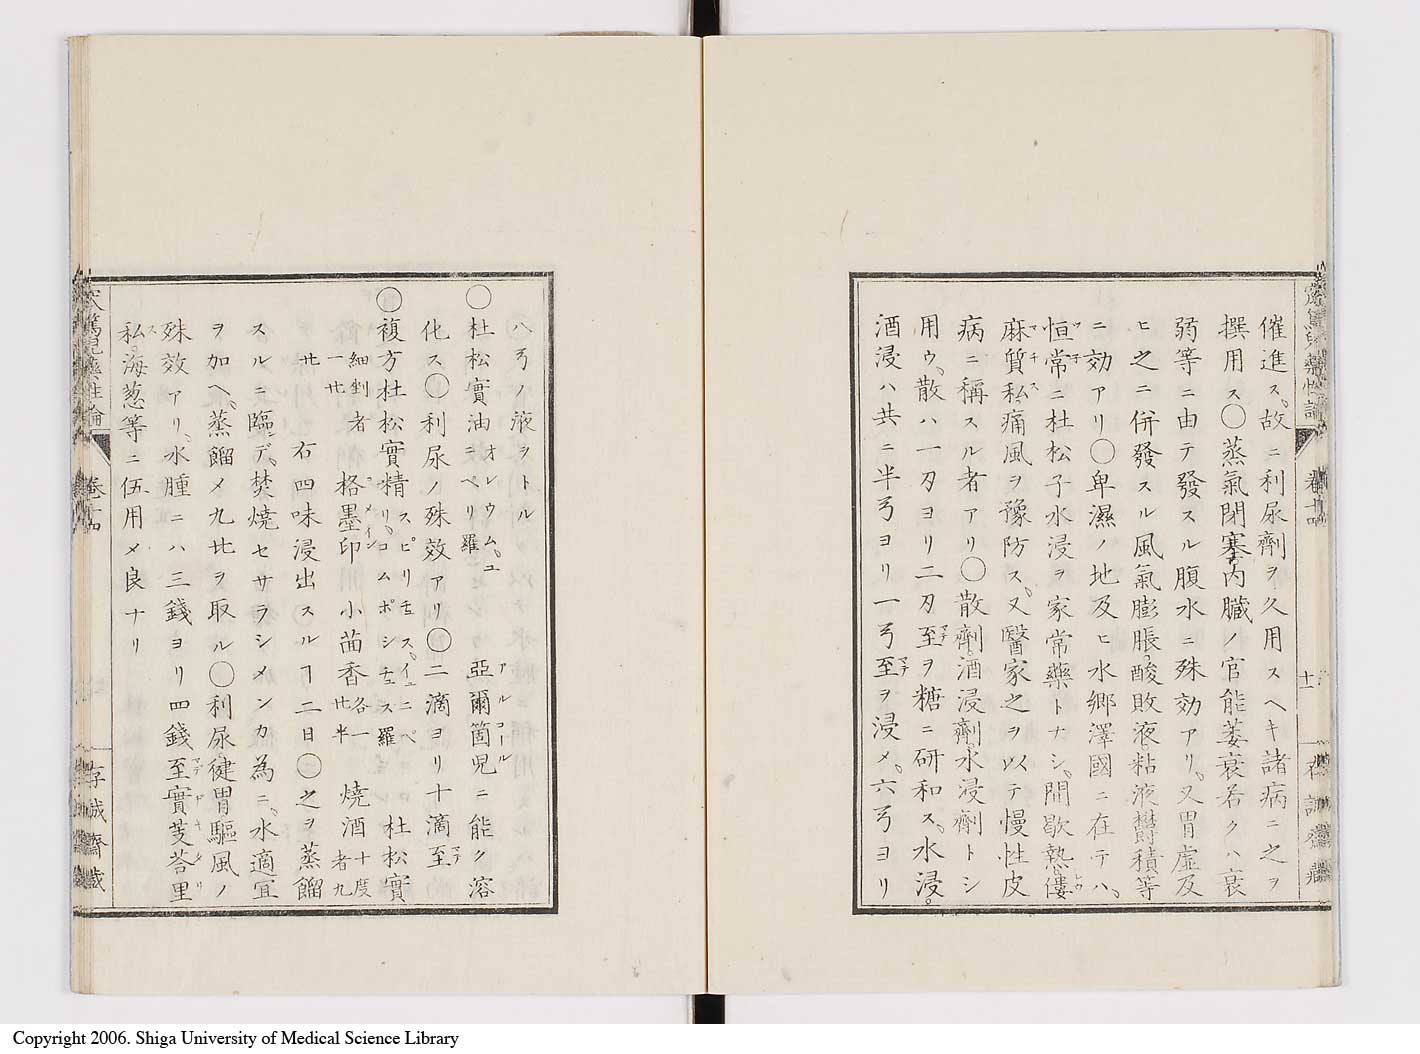 催進ス。故ニ利尿劑ヲ久用スヘキ諸病ニ之ヲ
撰用ス〇蒸氣閉塞、内臟ノ官能萎衰若クハ衰
弱等ニ由テ發スル腹水ニ殊効アリ、又胃虚及
ヒ之ニ併發スル風氣膨脹、酸敗液、粘液欝積等
ニ効アリ〇卑濕ノ地及ヒ水郷澤國ニ在テハ、
恒常ニ杜松子水浸ヲ家常藥トナシ、間歇熱、僂
麻質私、痛風ヲ豫防ス、又醫家之ヲ以テ慢性皮
病ニ稱スル者アリ〇散劑、酒浸劑、水浸劑トシ
用ウ、散ハ一刄ヨリ二刄至ヲ糖ニ研和ス、水浸。
酒浸ハ共ニ半弓ヨリ一弓至ヲ浸メ、六弓ヨリ
八弓ノ液ヲトル
〇杜松實油 オレウム、ユニペリ羅 亞爾箇児ニ能ク溶
化ス〇利尿ノ殊效アリ〇二滴ヨリ十滴至
〇複方杜松實精 スピリチュス、イユニペリ、コムポシチュス羅 杜松實
細剉者一廿 格墨印 小茴香 各一廿半 燒酒 十度者九
廿 右四味浸出スルヿ二日〇之ヲ蒸餾
スルニ臨デ、焚焼セサラシメンカ為ニ、水適宜
ヲ加ヘ、蒸餾メ九廿ヲ取ル〇利尿、健胃驅風ノ
殊效アリ、水腫ニハ三錢ヨリ四錢至實芰荅里
私、海葱等ニ伍用メ良ナリ
卷十四
十一
存誠齋藏
Copyright 2006. Shiga University of Medical Science Library